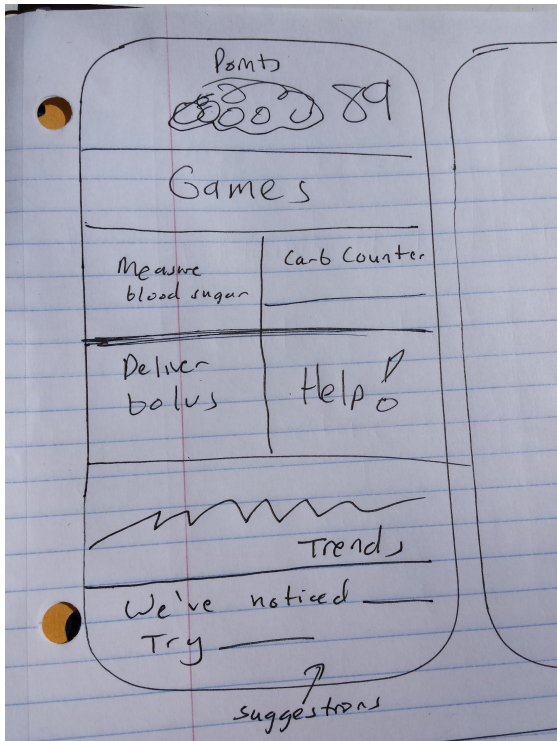 Points
89
Games
Measure
blood sugar
Carb Counter
Deliver
bolus
Help!
Trends
We've noticed
Try
suggestions